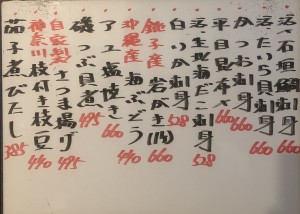 活・石垣鯛刺身 660
活・たいら貝刺身 660
かつお刺身 660
平目昆布〆 660
活・生北海だこ刺身 528
白いか刺身 528
銚子産 岩がき(1ヶ) 660
沖縄産 海ぶどう 440
アユ塩焼き 660
磯つぶ貝煮 495
自家製 さつま揚げ 495
神奈川 枝付き枝豆 440
茄子煮びたし 385